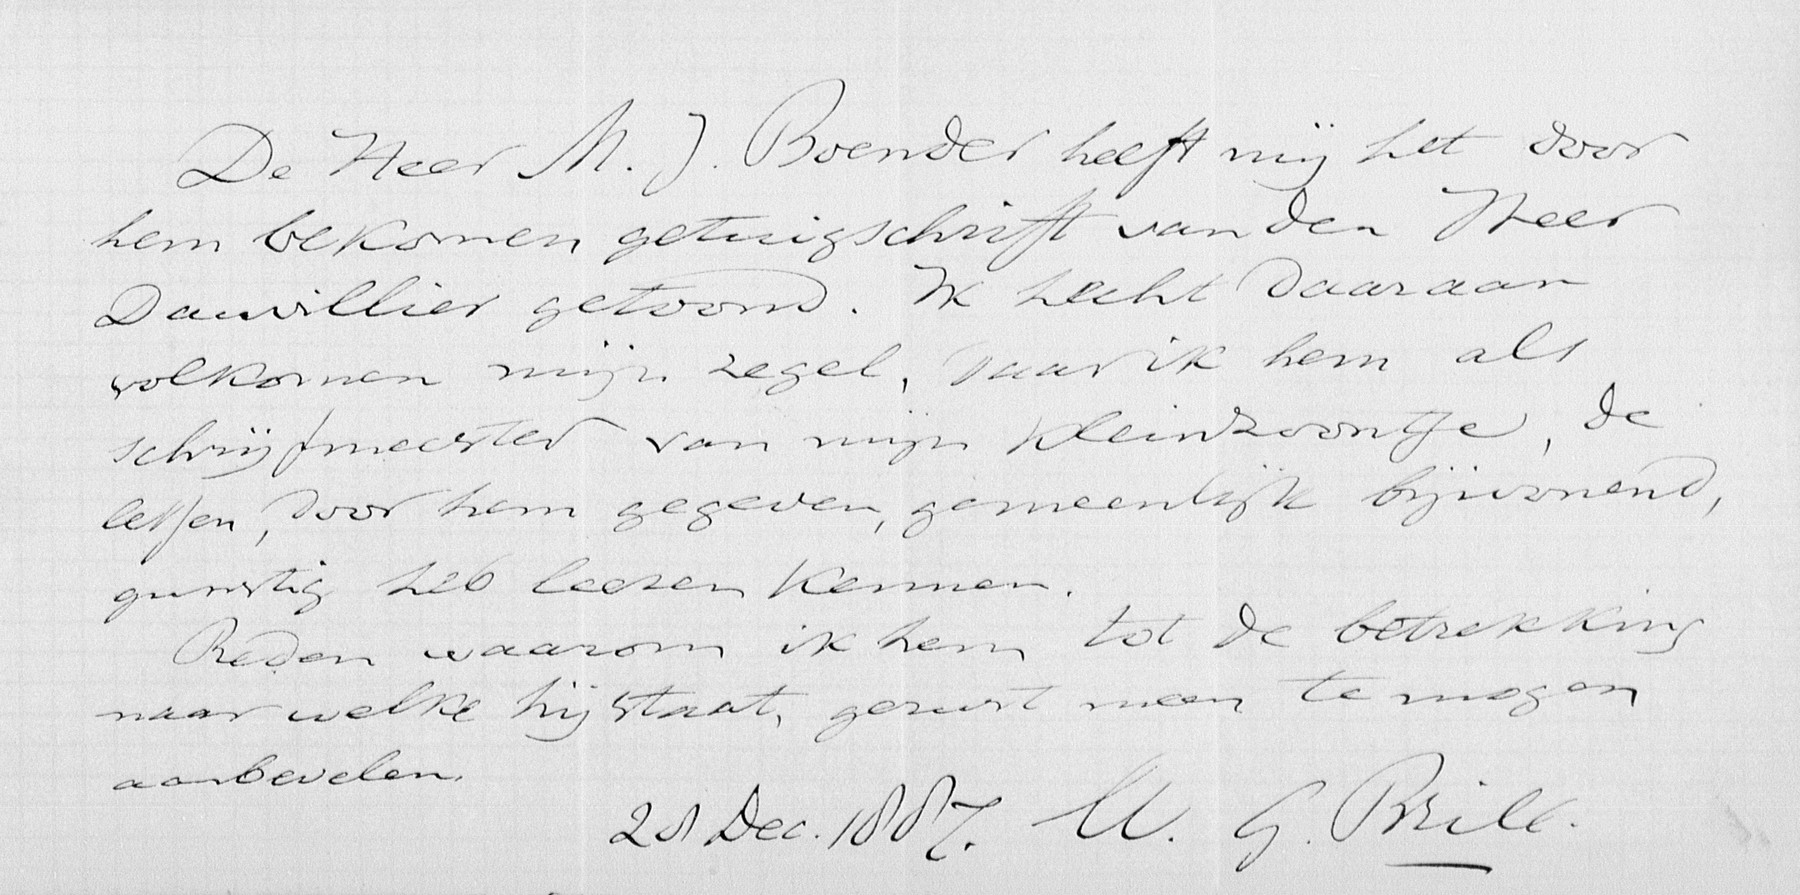 De Heer M. J. Boender heeft mij het door
hem bekomen getuigschrift van den Heer
Dauvillier getoond. Ik hecht daaraan
volkomen mijn zegel, daar ik hem als
schrijfmeester van mijn kleinzoontje, de
lessen, door hem gegeven, gemeenlijk bijwonend,
gunstig heb leeren kennen.
Reden waarom ik hem tot de betrekking
naar welke hij staat, gerust meen te mogen
aanbevelen.
28 Dec. 1887. W. G. Brill.